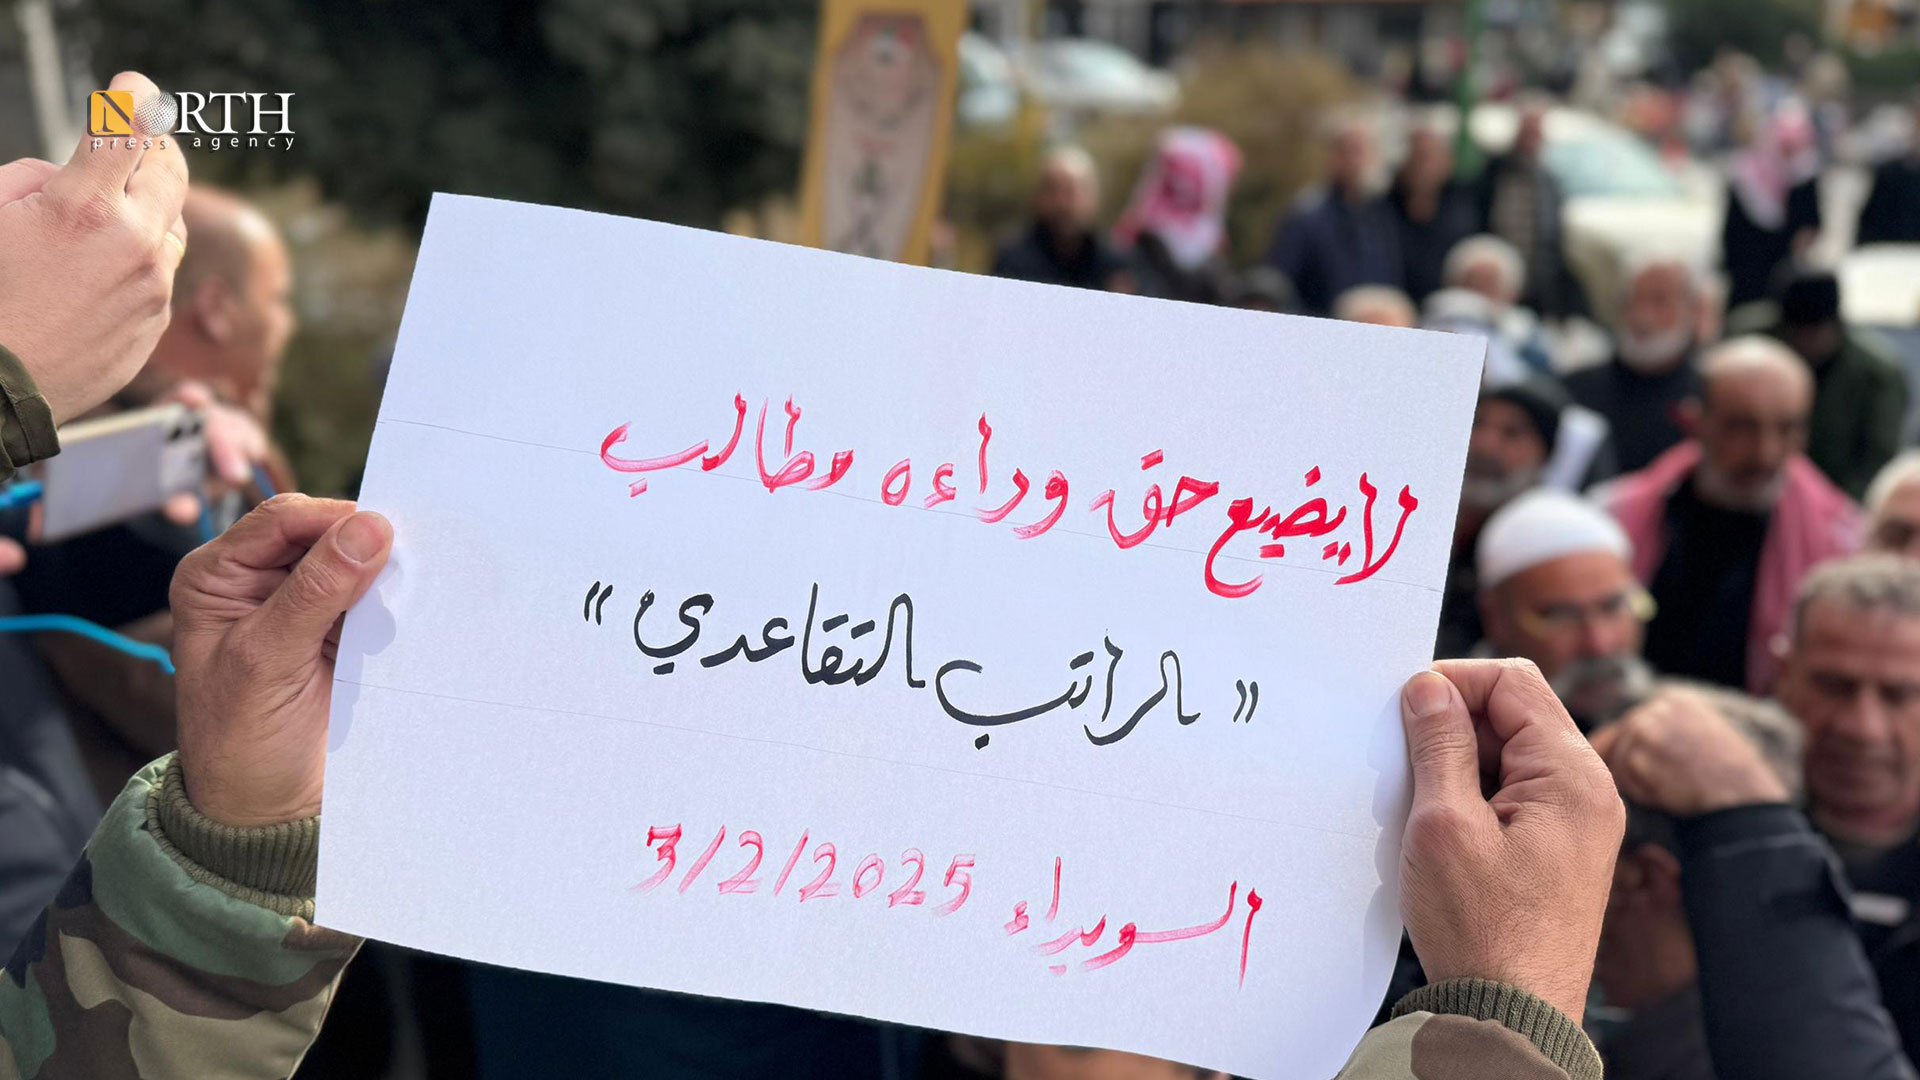 NORTH
press agency
لا يضيع حق وراءه مطالب
"الراتب التقاعدي"
السويداء 3/2/2025